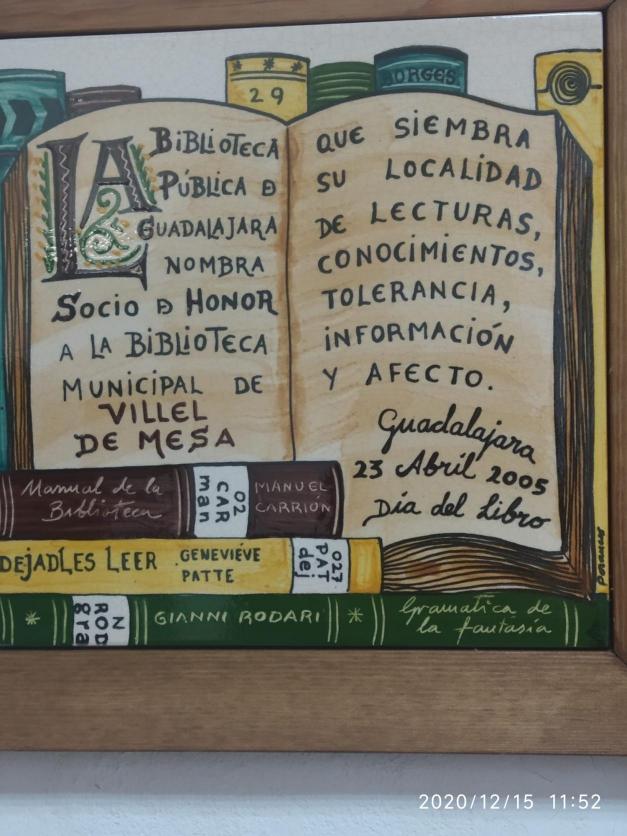 29
BORGES
LA BIBLIOTECA
PÚBLICA D
GUADALAJARA
NOMBRA
SOCIO D HONOR
A LA BIBLIOTECA
MUNICIPAL DE
VILLEL
DE MESA
QUE SIEMBRA
SU LOCALIDAD
DE LECTURAS,
CONOCIMIENTOS,
TOLERANCIA,
INFORMACIÓN
Y AFECTO.
Guadalajara
23 Abril 2005
Día del Libro
Manual de la
Biblioteca
02
CAR
man
MANUEL
CARRIÓN
DEJADLES LEER
GENEVIÉVE
PATTE
027
PAT
dej
N
ROD
gra
GIANNI RODARI
Gramatica de
la fantasía
2020/12/15 11:52